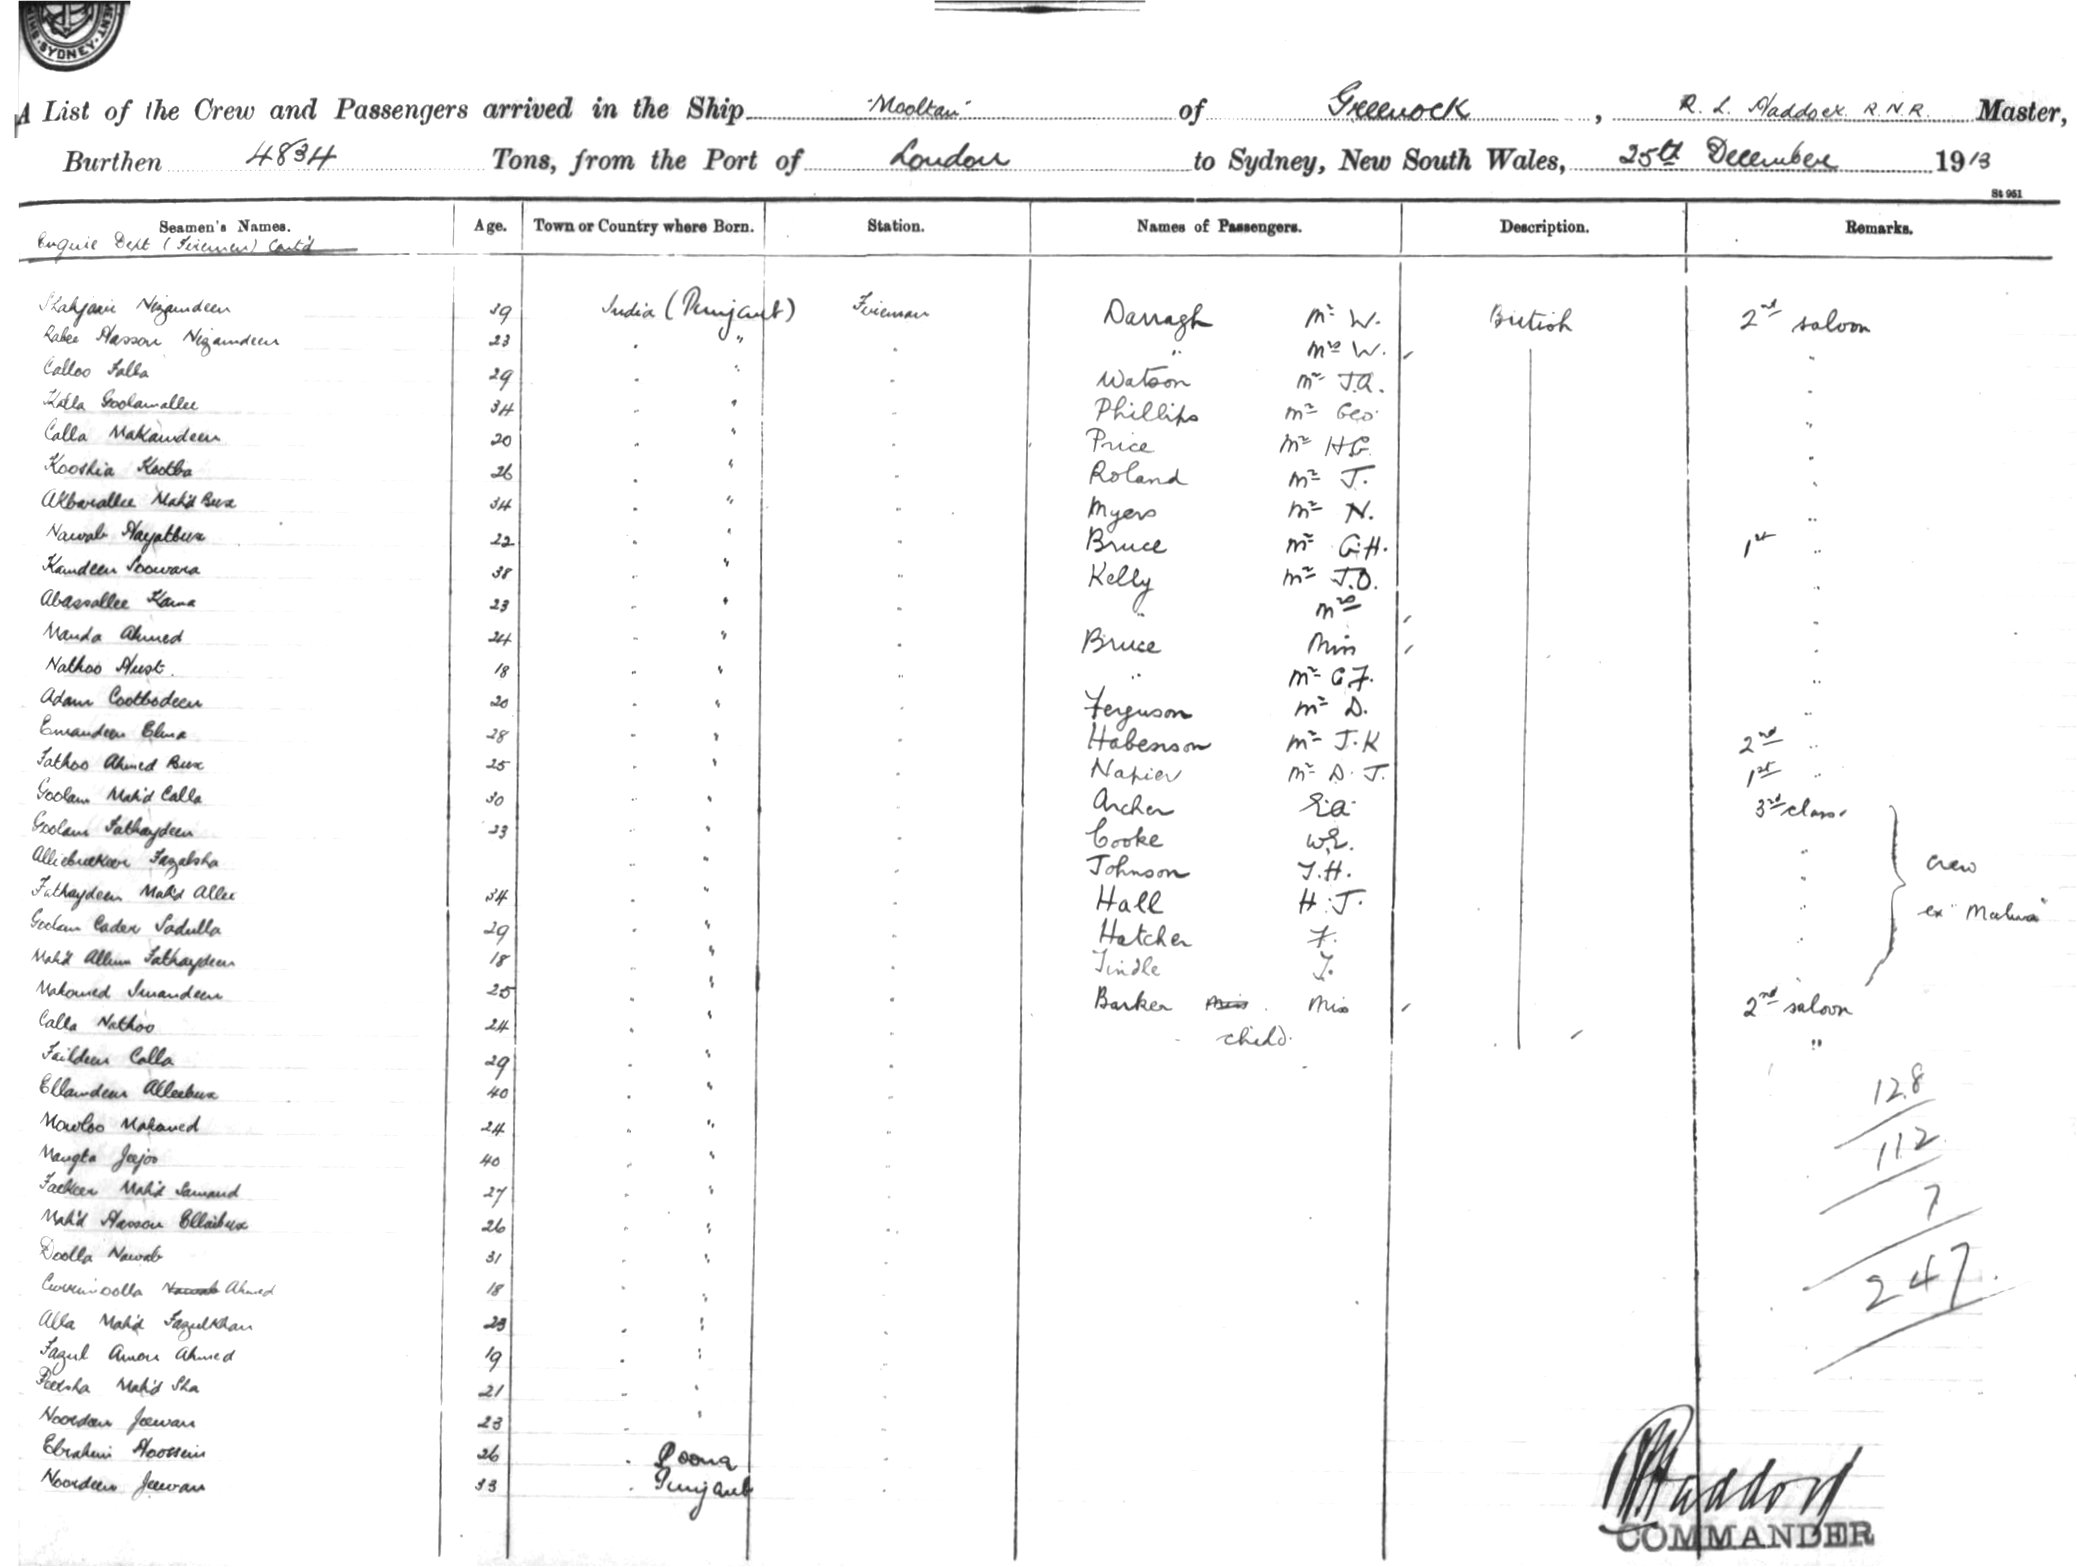 SYDNEY
A List of the Crew and Passengers arrived in the Ship "Mooltan" of Greenock, R. L. Haddock R.N.R. Master,
Burthen 4834 Tons, from the Port of London to Sydney, New South Wales, 25th December 1913
St 951
Seamen's Names. Age. Town or Country where Born. Station. Names of Passengers. Description. Remarks.
Engine Dept (Firemen) Cont'd
Nizamdeen 39 India (Punjaub) Fireman Darragh Mr W. British 2nd saloon
Rabee Hasson Nizamdeen 23 " " " " Mrs W. "
Calloo Falla 29 " " " Watson Mr J.A. "
Kalla Goolamallee 34 " " " Phillips Mr Geo. "
Calla Makamdeen 20 " " " Price Mr H G. "
Kooshia Kootba 26 " " " Roland Mr J. "
Akbarallee Mah'd Bux 34 " " " Myers Mr N. "
Nawab Hayatbux 22 " " " Bruce Mr G.H. 1st "
Kamdeen Soowara 38 " " " Kelly Mr J.O. "
Abassallee Kama 23 " " " " Mrs "
Manda Ahmed 24 " " " Bruce Miss "
Nathoo Hust. 18 " " " " Mr G.F. "
Adam Cootbodeen 20 " " " Ferguson Mr D. "
Emandeen Elma 28 " " " Habenson Mr J.K 2nd "
Fathoo Ahmed Bux 25 " " " Napier Mr D. J. 1st "
Goolam Mah'd Calla 30 " " " Archer E.A. 3rd class
Goolam Fathaydeen 23 " " " Cooke W.E. "
Alliebuckser Fazalsha " " " Johnson T.H. " Crew
Fathaydeen Mah'd Allee 34 " " " Hall H.J. " ex "Malwa"
Goolam Cader Sadulla 29 " " " Hatcher F. "
Mah'd Allum Fathaydeen 18 " " " Tindle T. "
Mahomed Imandeen 25 " " " Barker Miss Miss 2nd saloon
Calla Nathoo 24 " " " child. "
Faildeen Calla 29 " " "
Ellamdeen Alleebux 40 " " " 128
Mowloo Mahomed 24 " " " 112
Mangta Jeejoo 40 " " "
Fackeer Mah'd Samand 27 " " " 7
Mah'd Hasson Ellaibux 26 " " "
Doolla Nawab 31 " " " 247
Nawab Ahmed 18 " " "
Alla Mah'd Fazulkhan 23 " " "
Fazul Amon Ahmed 19 " " "
Peersha Mah'd Sha 21 " " "
Noordeen Jeewan 23 " " "
Ebrahim Hoossein 26 " Poona "
Noordeen Jeewan 33 " Punjaub "
R L Haddock
COMMANDER